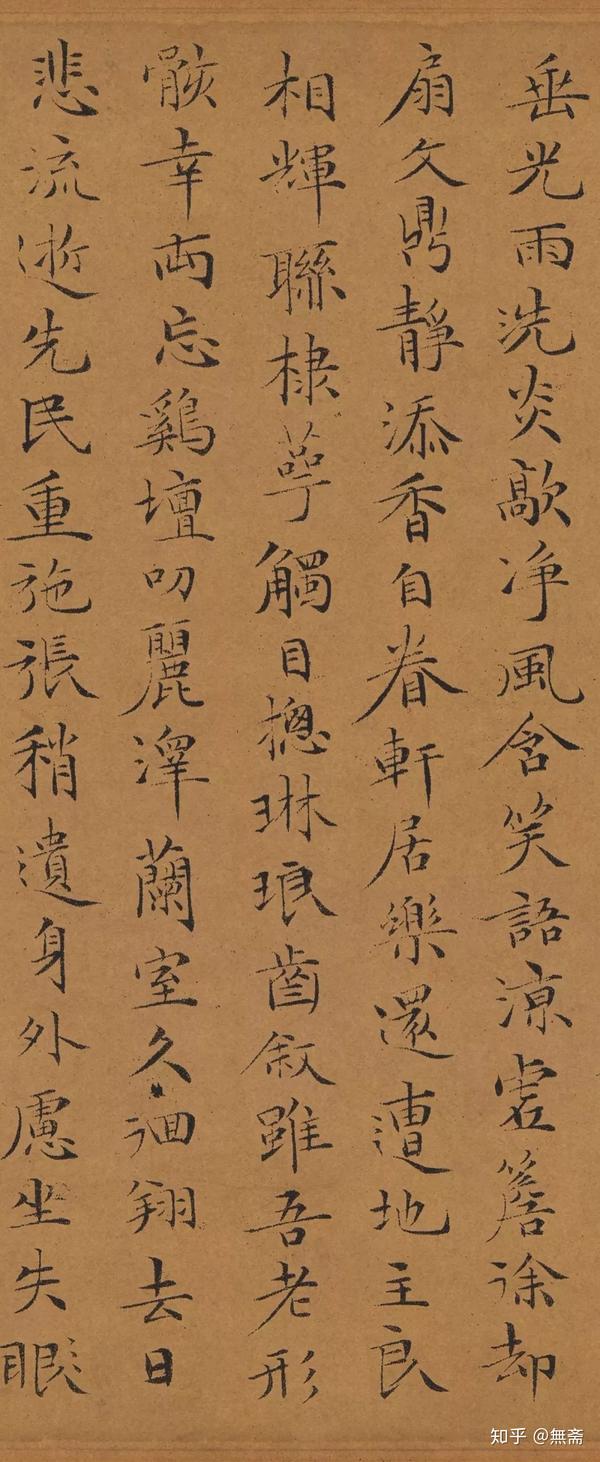 垂光雨洗炎歊净風含笑語涼虛簷徐却
扇文鼎靜添香自眷軒居樂還遭地主良
相輝聯棣萼觸目摠琳琅齒敘雖吾老形
骸幸両忘鷄壇叨麗澤蘭室久徊翔去日
悲流逝先民重施張稍遺身外慮坐失眼
知乎 @無斋